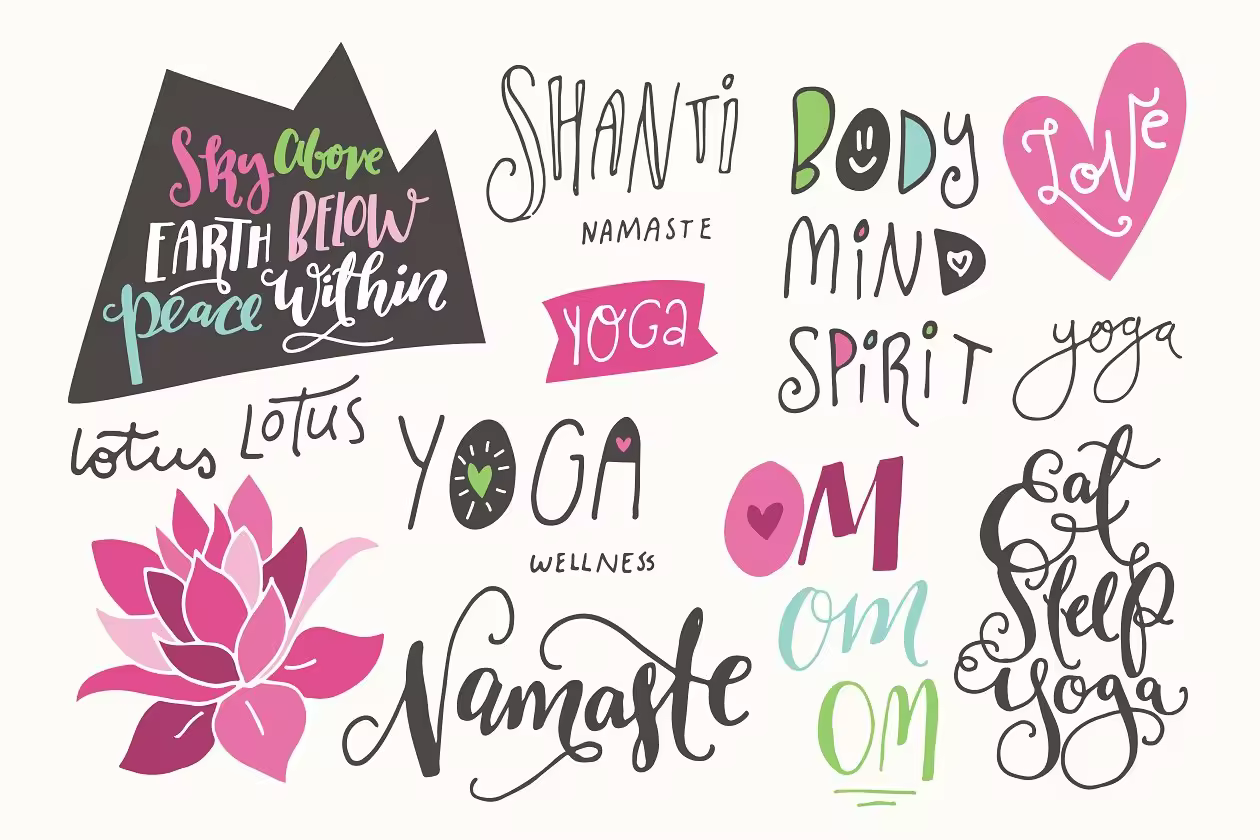 Sky Above
EARTH BELOW
peace within
SHANTi
NAMASTE
BODY
MiND
SPiRiT
LoVe
YOGa
yoga
lotus
LOTUS
YOGA
WELLNESS
Namaste
OM
om
OM
Eat
Sleep
yoga